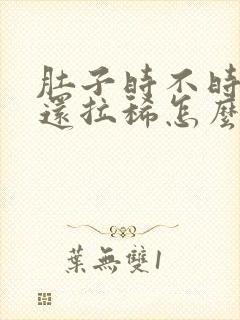 肚子時不時
還拉稀怎麼
葉無雙1